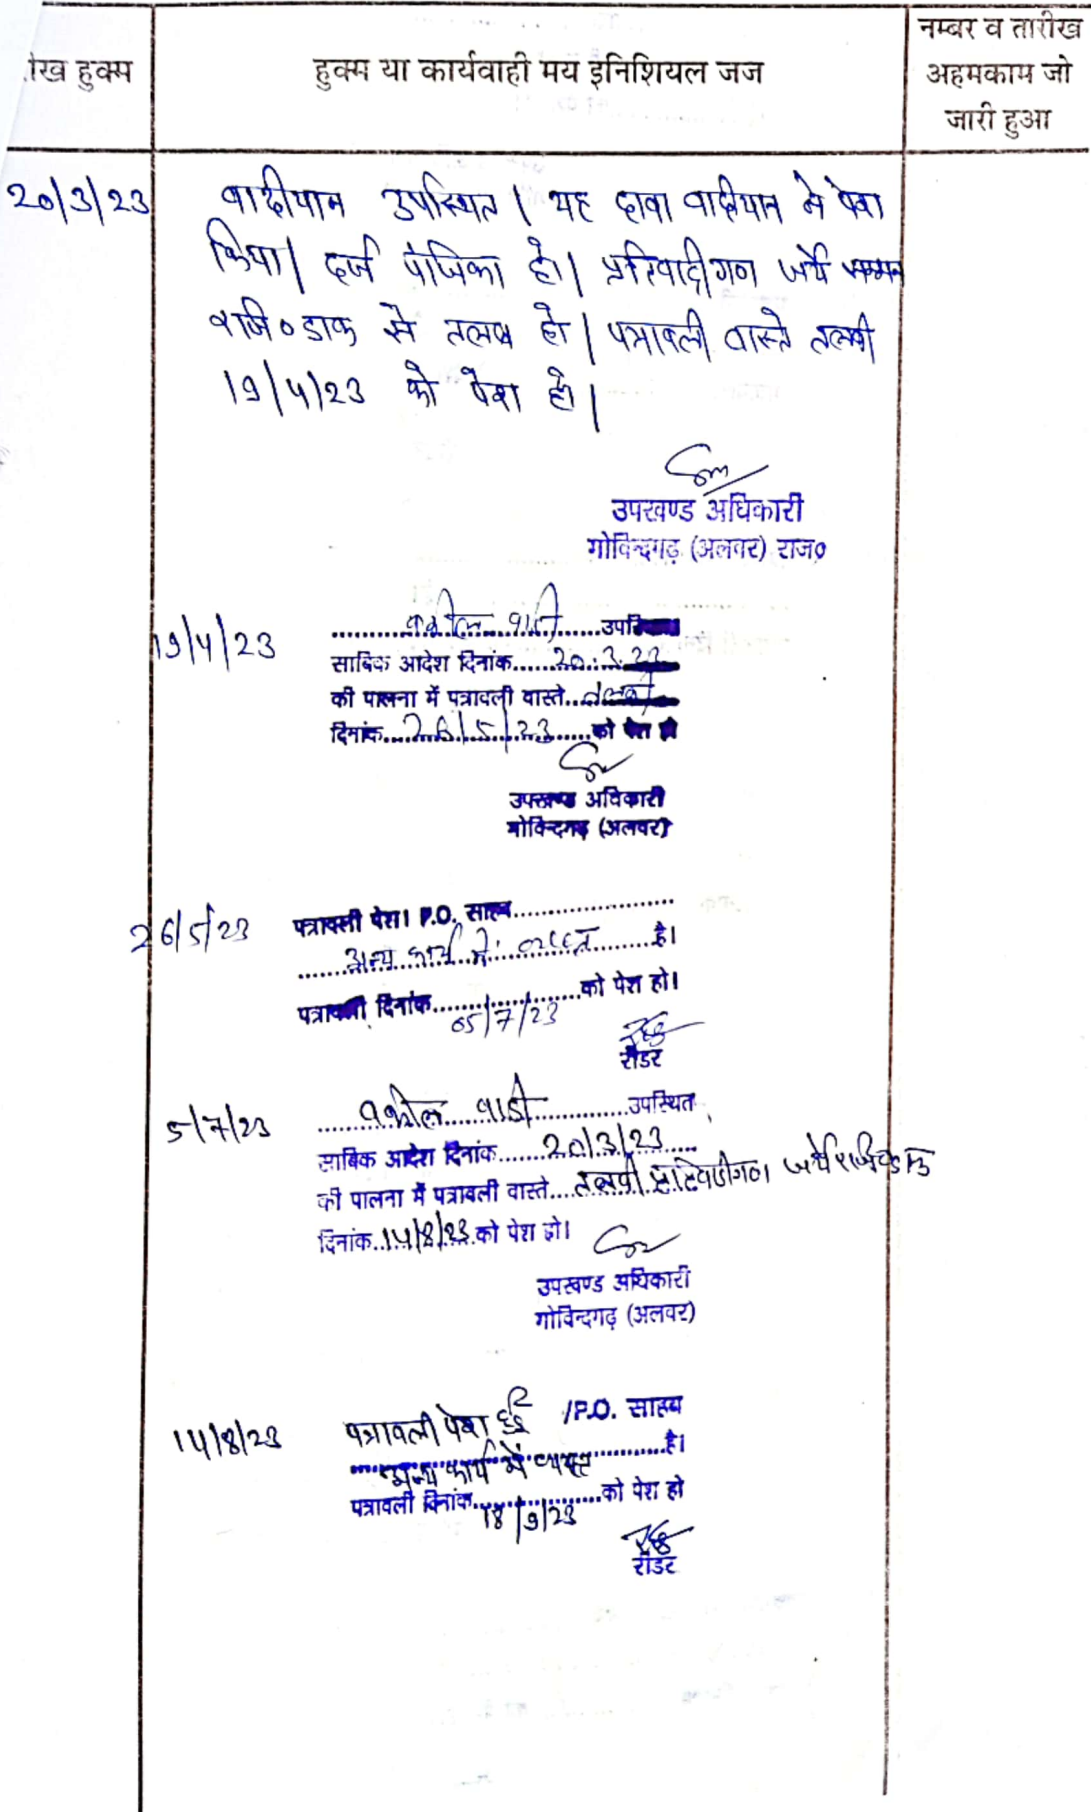 ीख हुक्म
हुक्म या कार्यवाही मय इनिशियल जज
नम्बर व तारीख
अहमकाम जो
जारी हुआ
20/3/23
वादीयान उपस्थित। यह दावा वादीयान ने पेश
किया। दर्ज पंजिका हो। प्रतिवादीगण जर्ये सम्मन
रजि० डाक से तलब हो। पत्रावली वास्ते तलबी
19/4/23 को पेश हो।
उपखण्ड अधिकारी
गोविन्दगढ़ (अलवर) राज०
19/4/23
वकील वादी उपस्थित
साबिक आदेश दिनांक 20.3.23
की पालना में पत्रावली वास्ते तलबी
दिनांक 26/5/23 को पेश हो
उपखण्ड अधिकारी
गोविन्दगढ़ (अलवर)
26/5/23
पत्रावली पेश। P.O. साहब
अन्य कार्य में व्यस्त है।
पत्रावली दिनांक 05/7/23 को पेश हो।
रीडर
5/7/23
वकील वादी उपस्थित
साबिक आदेश दिनांक 20/3/23
की पालना में पत्रावली वास्ते तलबी प्रतिवादीगण जर्ये रजि० डाक
दिनांक 14/8/23 को पेश हो।
उपखण्ड अधिकारी
गोविन्दगढ़ (अलवर)
14/8/23
पत्रावली पेश हुई /P.O. साहब
अन्य कार्य में व्यस्त है।
पत्रावली दिनांक 18/9/23 को पेश हो
रीडर